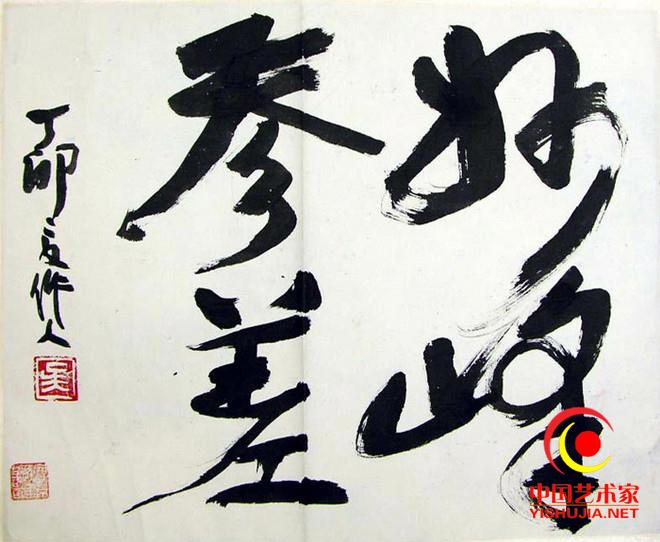 峰
参差
丁卯夏作人
吴
中国艺术家
YISHUJIA.NET